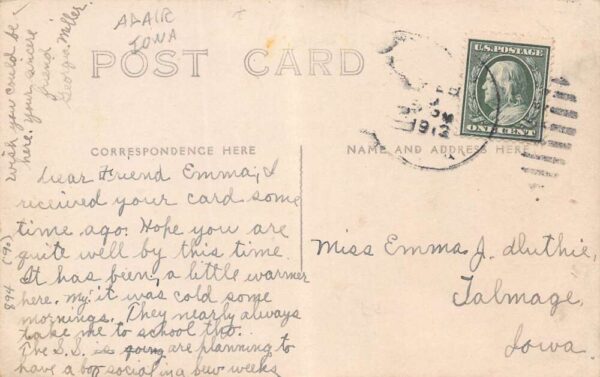 wish you could be
here. Your sincere
friend
George Miller.
ADAIR
IONA
POST CARD
U.S. POSTAGE
ONE CENT
1912
CORRESPONDENCE HERE
NAME AND ADDRESS HERE
Dear Friend Emma; I
received your card some
time ago. Hope you are
quite well by this time.
It has been, a little warmer
here. my. it was cold some
mornings. They nearly always
take me to school tho.
The S.S. is going are planning to
have a box social in a few weeks
894 (90)
Miss Emma J. Duthie,
Talmage,
Iowa.